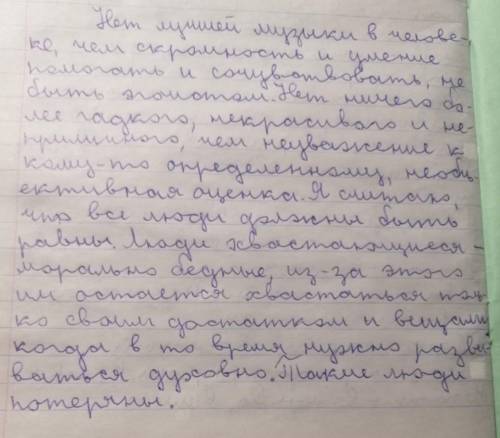 Нет лучшей музыки в челове-
ке, чем скромность и умение
помогать и сочувствовать, не
быть эгоистом. Нет ничего бо-
лее гадкого, некрасивого и не-
приличного, чем неуважение к
кому-то определенному, необъ-
ективная оценка. Я считаю,
что все люди должны быть
равны. Люди хвастающиеся -
морально бедные, из-за этого
им остается хвастаться толь-
ко своим достатком и вещами
когда в то время нужно разви-
ваться духовно. Такие люди
потеряны.